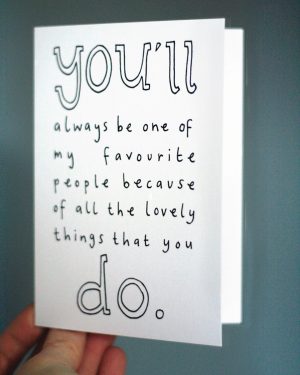 you'll
always be one of
my favourite
people because
of all the lovely
things that you
do.